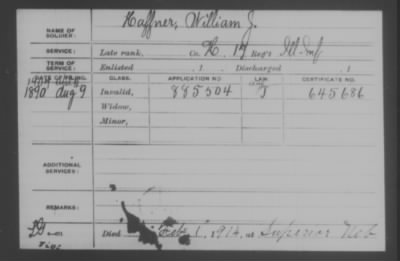 NAME OF SOLDIER: Haffner, William J.
SERVICE: Late rank, Co. H, 17 Reg't Ill. Inf
TERM OF SERVICE: Enlisted , 1 Discharged , 1
DATE OF FILING. CLASS. APPLICATION NO. LAW. CERTIFICATE NO.
1890 Aug 9 Invalid, 885504 J 645686
Widow,
Minor,
ADDITIONAL SERVICES:
REMARKS:
Died Feb. 1, 1914, at Superior Neb